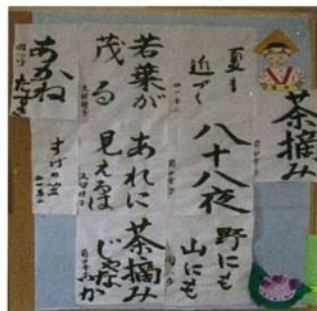 茶摘み
夏も
近づく
八十八夜
野にも
山にも
若葉が
茂る
あれに
見えるは
茶摘み
じゃないか
あかね
だすき
すげの笠